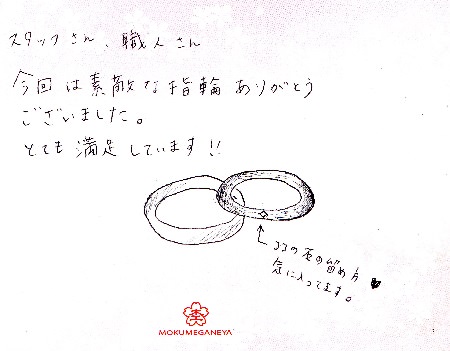 スタッフさん、職人さん
今回は素敵な指輪ありがとう
ございました。
とても満足しています!!
ココの石の留め方
気に入ってます。♥
MOKUMEGANEYA